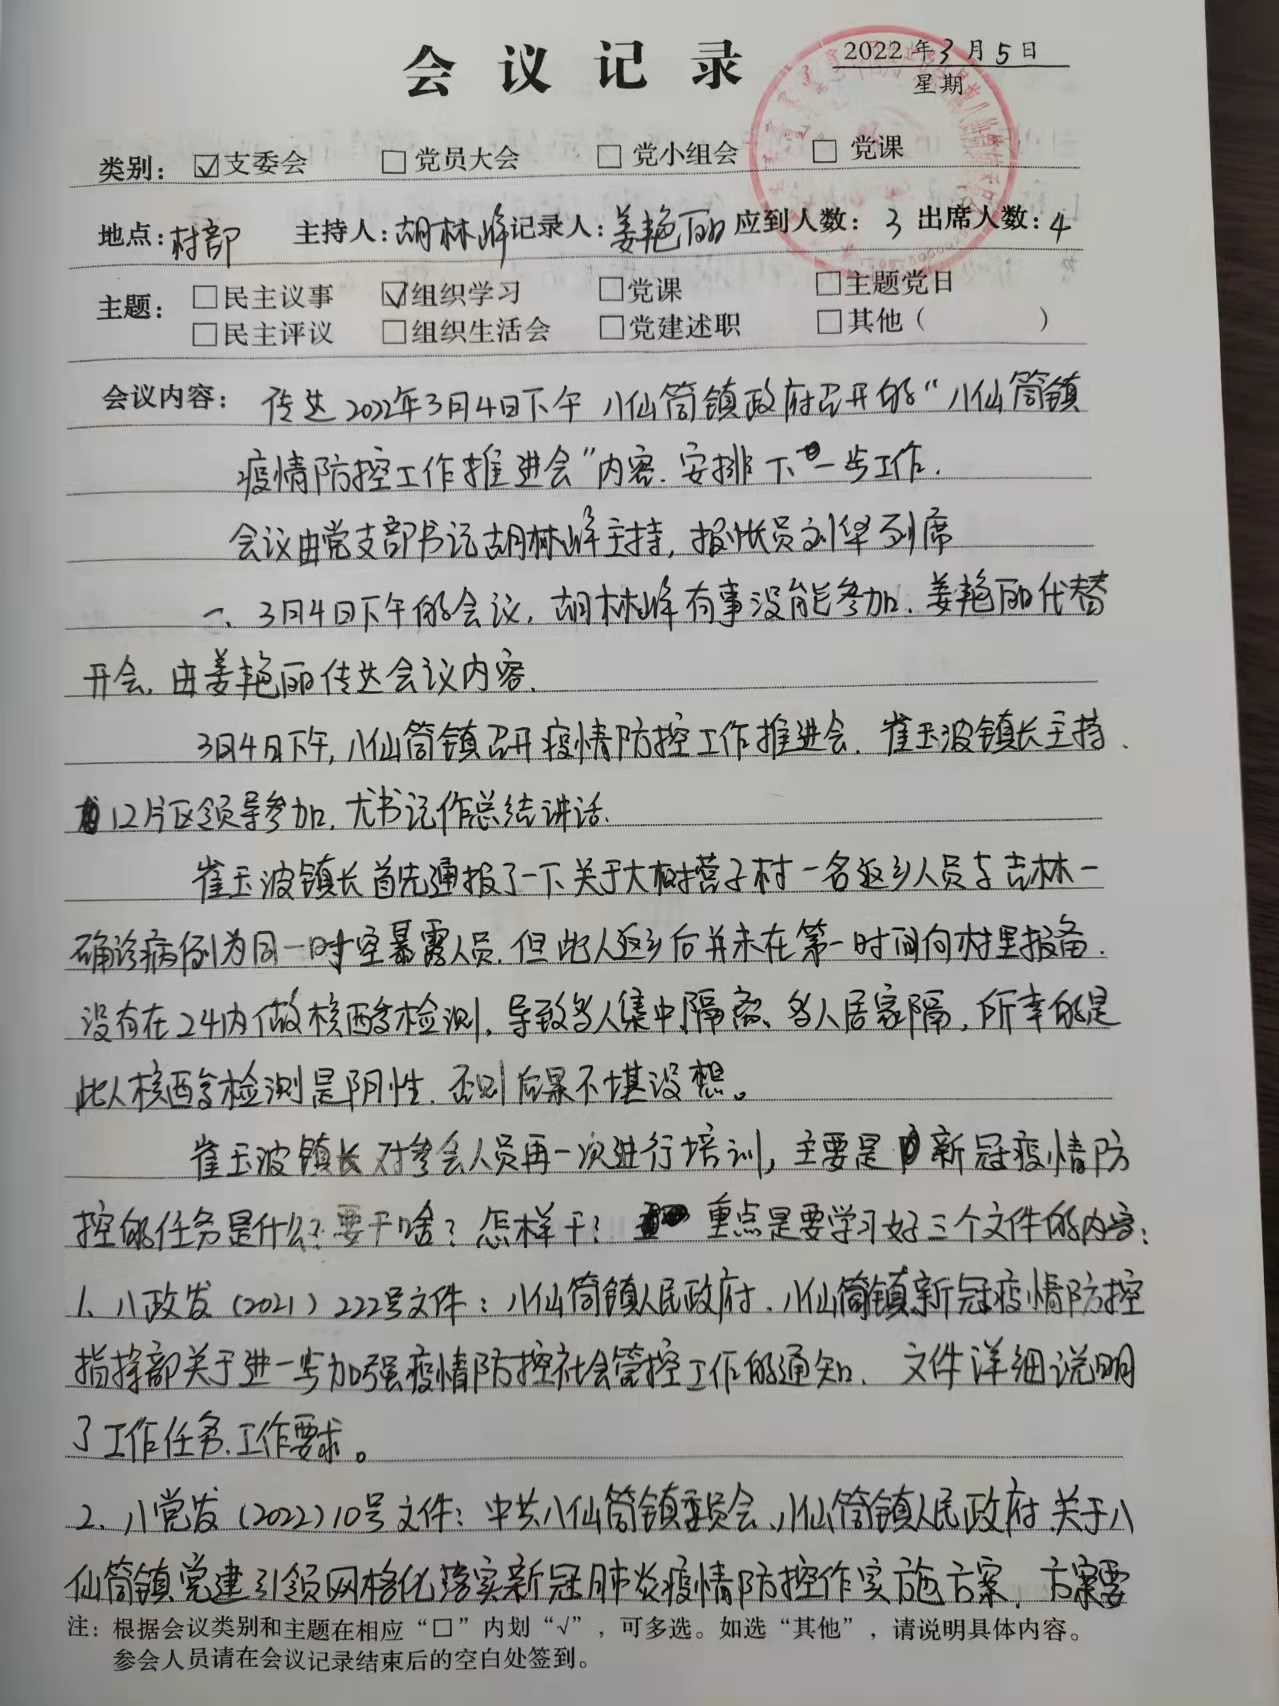 会议记录
2022年3月5日
星期
类别： ☑支委会 □党员大会 □党小组会 □党课
地点：村部 主持人：胡林峰 记录人：姜艳丽 应到人数：3 出席人数：4
主题： □民主议事 ☑组织学习 □党课 □主题党日
□民主评议 □组织生活会 □党建述职 □其他（ ）
会议内容： 传达2022年3月4日下午八仙筒镇政府召开的“八仙筒镇
疫情防控工作推进会”内容.安排下一步工作.
会议由党支部书记胡林峰主持，报账员刘华列席
一、3月4日下午的会议，胡林峰有事没能参加.姜艳丽代替
开会.由姜艳丽传达会议内容.
3月4日下午,八仙筒镇召开疫情防控工作推进会.崔玉波镇长主持.
12片区领导参加,尤书记作总结讲话.
崔玉波镇长首先通报了一下关于大树营子村一名返乡人员与吉林一
确诊病例为同一时空暴露人员.但此人返乡后并未在第一时间向村里报备.
没有在24内做核酸检测,导致多人集中隔离、多人居家隔,所幸的是
此人核酸检测是阴性.否则后果不堪设想。
崔玉波镇长对参会人员再一次进行培训，主要是新冠疫情防
控的任务是什么?要干啥?怎样干? 重点是要学习好三个文件的内容:
1、八政发（2021）222号文件：八仙筒镇人民政府、八仙筒镇新冠疫情防控
指挥部关于进一步加强疫情防控社会管控工作的通知.文件详细说明
了工作任务.工作要求。
2、八党发（2022）10号文件：中共八仙筒镇委员会、八仙筒镇人民政府关于八
仙筒镇党建引领网格化落实新冠肺炎疫情防控作实施方案,方案要
注：根据会议类别和主题在相应“□”内划“√”，可多选。如选“其他”，请说明具体内容。
参会人员请在会议记录结束后的空白处签到。